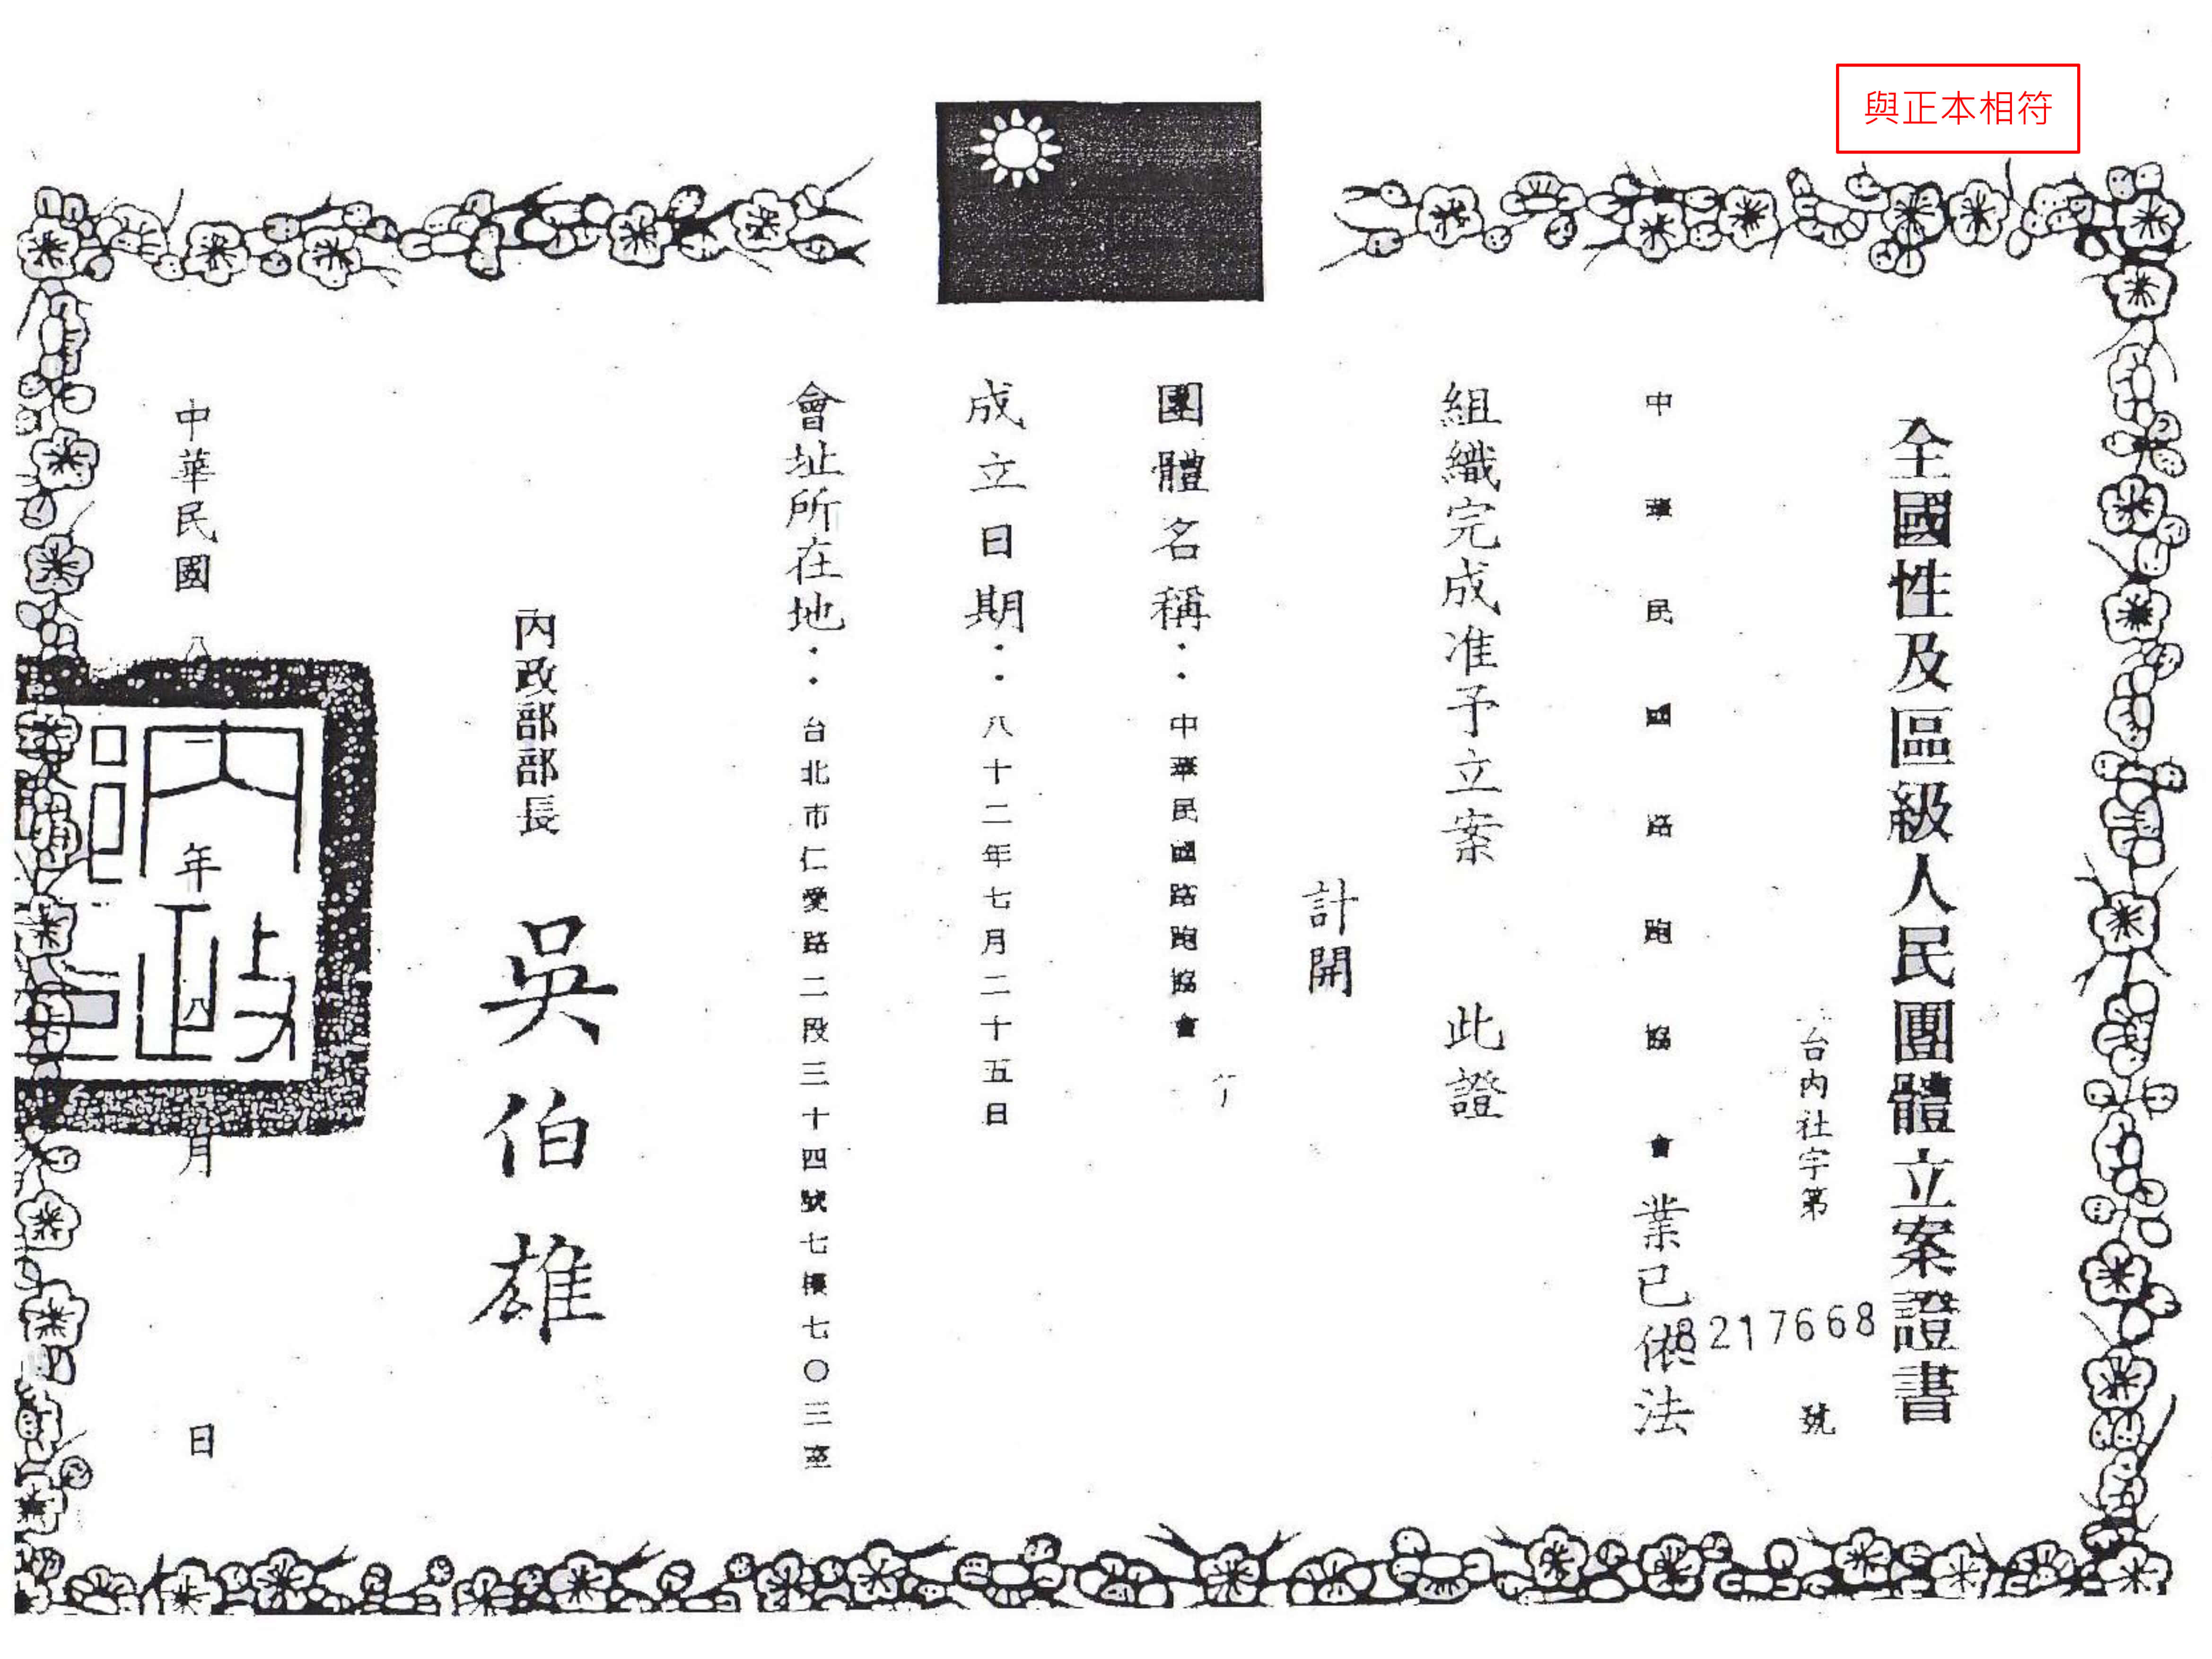 與正本相符
全國性及區級人民團體立案證書
台內社字第 8217668 號
中華民國路跑協會業已依法
組織完成准予立案 此證
計開
團體名稱：中華民國路跑協會
成立日期：八十二年七月二十五日
會址所在地：台北市仁愛路二段三十四號七樓七〇三室
內政部部長 吳伯雄
中華民國 八 年 八 月 日